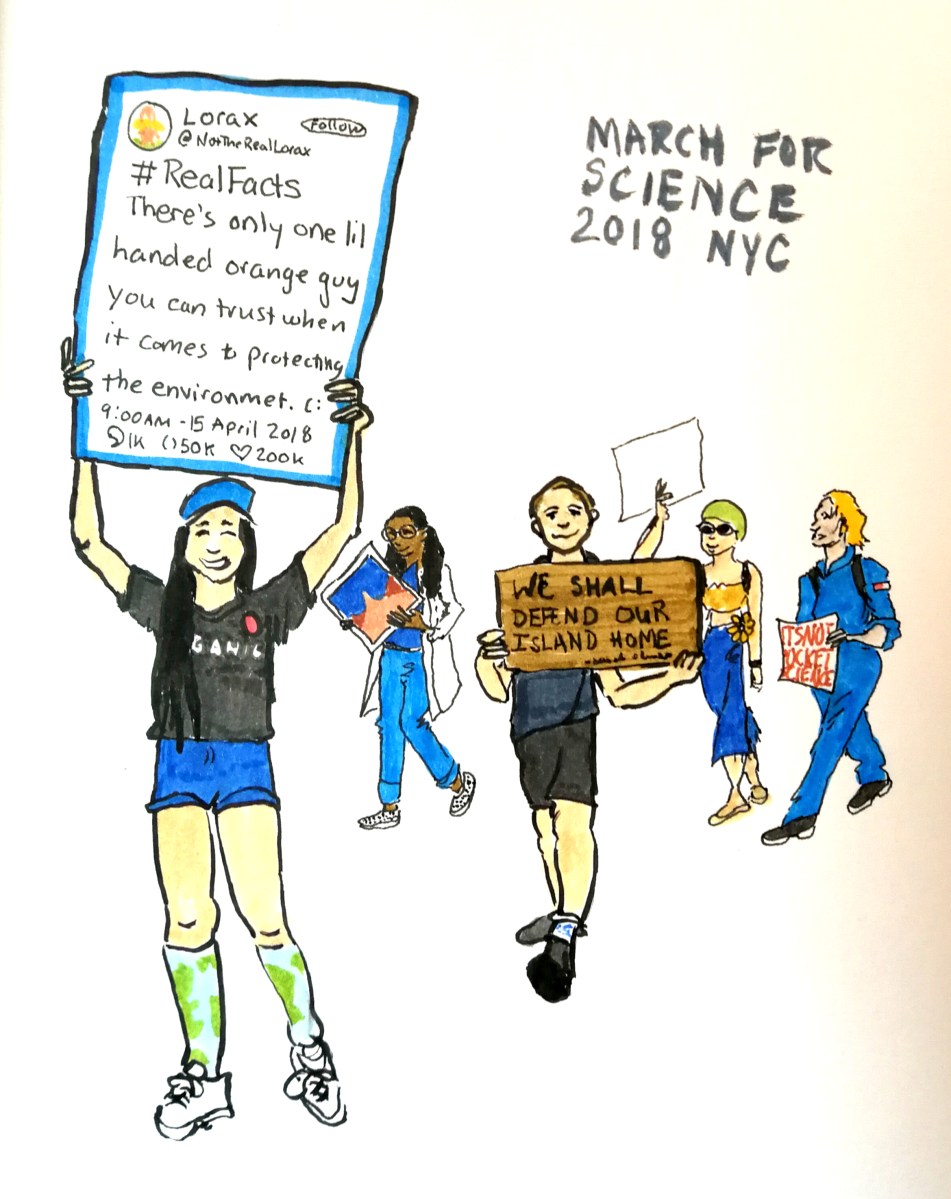 Lorax
Follow
@NotTheRealLorax
#RealFacts
There's only one lil
handed orange guy
you can trust when
it comes to protecting
the environmet. c:
9:00AM - 15 April 2018
1K 50K 200K
MARCH FOR
SCIENCE
2018 NYC
GANIC
WE SHALL
DEFEND OUR
ISLAND HOME
ITS NOT
ROCKET
SCIENCE